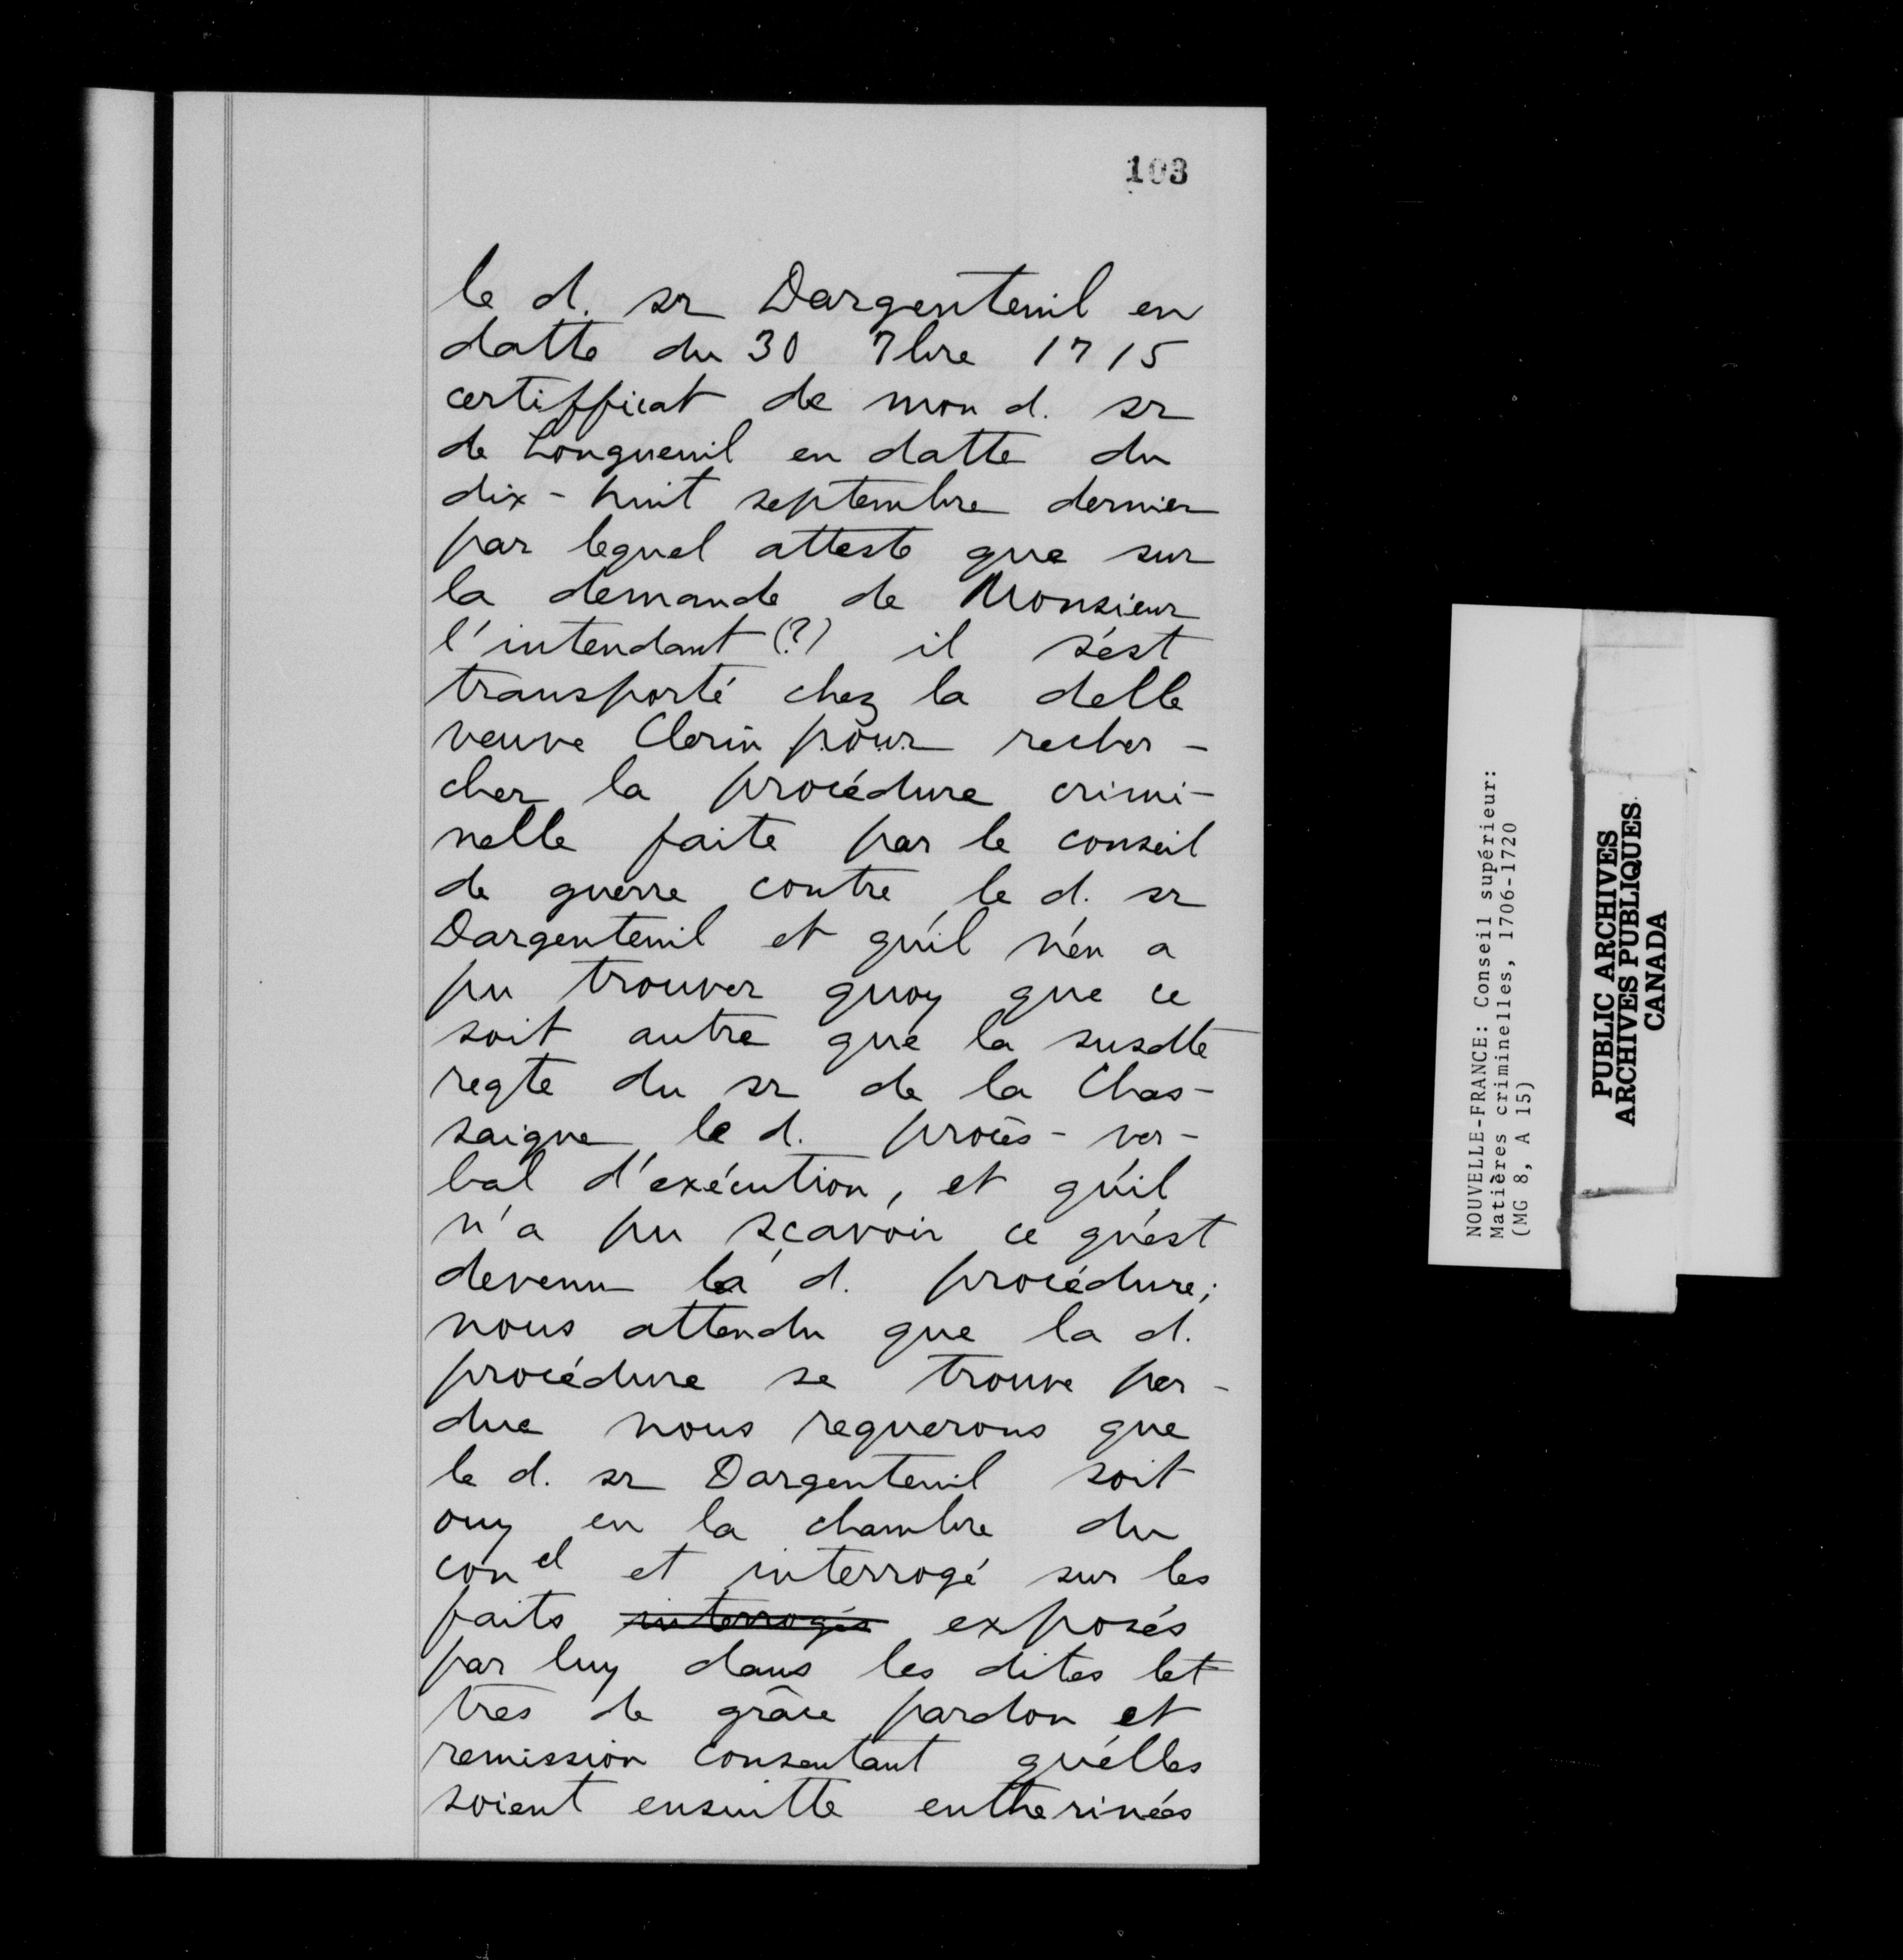 103
le d. sr Dargenteuil en
datte du 30 7bre 1715
certifficat de mon d. sr
de Longueuil en datte du
dix-huit septembre dernier
par lequel atteste que sur
la demande de Monsieur
l'intendant (?) il s'est
transporté chez la delle
veuve Clerin pour recher-
cher la procédure crimi-
nelle faite par le conseil
de guerre contre le d. sr
Dargenteuil et qu'il n'en a
pu trouver quoy que ce
soit autre que la susdte
reqte du sr de la Chas-
saigne le d. procès-ver-
bal d'exécution, et qu'il
n'a pu sçavoir ce qu'est
devenu la d. procédure;
nous attendu que la d.
procédure se trouve per-
due nous requerons que
le d. sr Dargenteuil soit
ouy en la chambre du
conel et interrogé sur les
faits interrogés exposés
par luy dans les dites let
tres de grâce pardon et
remission consentant qu'elles
soient ensuitte entherinées
NOUVELLE-FRANCE: Conseil supérieur:
Matières criminelles, 1706-1720
(MG 8, A 15)
PUBLIC ARCHIVES
ARCHIVES PUBLIQUES
CANADA